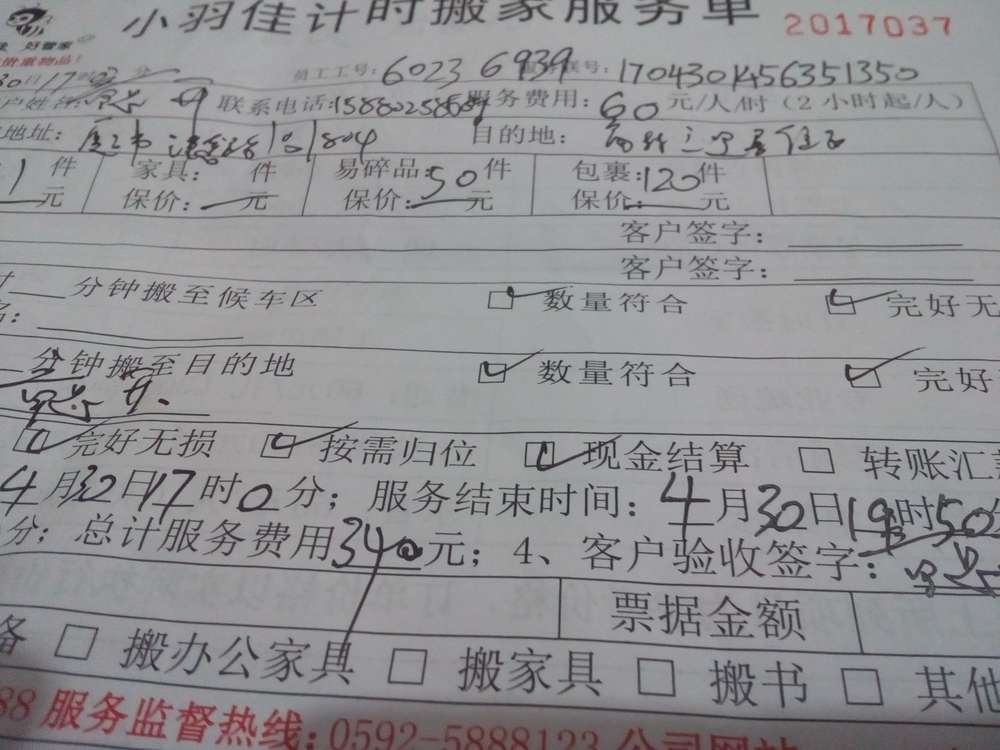 小羽佳计时搬家服务单 2017037
好管家
贵重物品!
30日17时 分 员工工号:6023 6939 号:1704301456351350
联系电话:15880258684 服务费用:60元/人/时(2小时起/人)
地址: 1804 目的地:
1件 家具: 件 易碎品:50件 包裹:120件
元 保价: 元 保价: 元 保价: 元
客户签字:
客户签字:
分钟搬至候车区 数量符合 完好无
名:
分钟搬至目的地 数量符合 完好
完好无损 按需归位 现金结算 转账汇
4月30日17时0分;服务结束时间:4月30日19时50
分;总计服务费用340元;4、客户验收签字:
票据金额
备 搬办公家具 搬家具 搬书 其他
88 服务监督热线:0592-5888123 公司网站